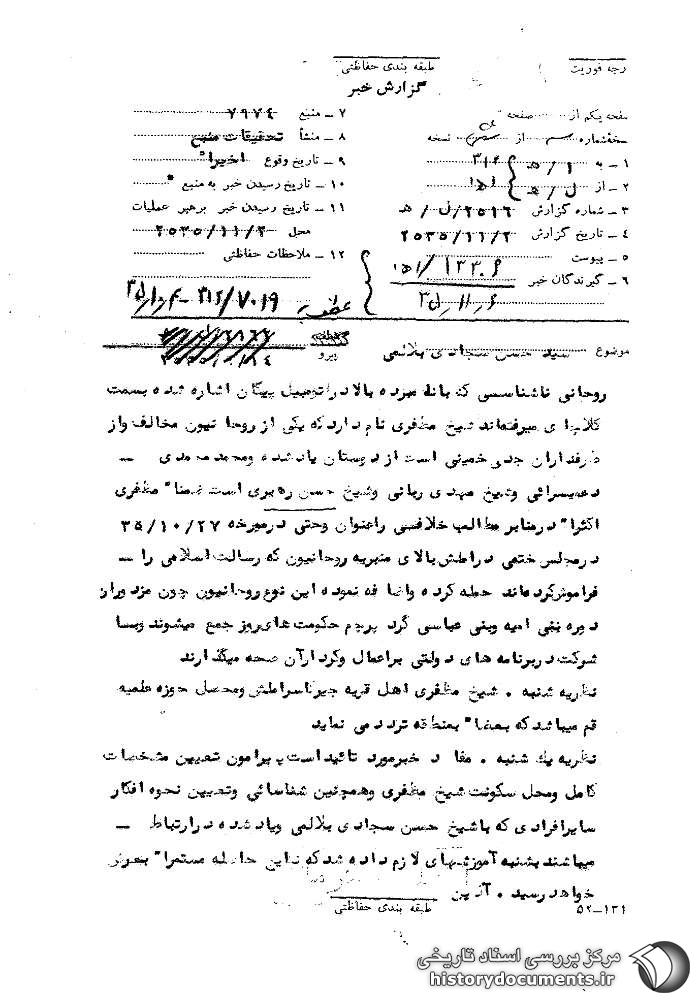 رجه فوریت
طبقه بندی حفاظتی
گزارش خبر
صفحه یکم از صفحه
نسخه‌شماره از نسخه
۱ – به ۳۱۲
۲ – از
۳ – شماره گزارش ۲۵۱۶/ل/ ه
۴ – تاریخ گزارش ۲۵۳۵/۱۱/۲
۵ – پیوست
۶ – گیرندگان خبر
۷ – منبع ۷۹۷۴
۸ – منشأ تحقیقات منبع
۹ – تاریخ وقوع اخیرا"
۱۰ – تاریخ رسیدن خبر به منبع "
۱۱ – تاریخ رسیدن خبر برهبر عملیات
محل ۲۵۳۵/۱۱/۲
۱۲ – ملاحظات حفاظتی
عطف به
پیرو
موضوع سید حسن سجادی بلالمی
روحانی ناشناسی که بانامبرده بالا در اتومبیل پیکان اشاره شده بسمت
کلاچای میرفته‌اند شیخ مظفری نام دارد که یکی از روحانیون مخالف واز
طرفداران جدی خمینی است از دوستان یادشده ومحمد محمدی –
دعیسرائی وشیخ مهدی ربانی وشیخ حسن رهبری است ضمنا" مظفری
اکثرا" درمنابر مطالب خلافی راعنوان وحتی درمورخه ۳۵/۱۰/۲۷
درمجلس ختمی دراملش بالای منبربه روحانیون که رسالت اسلامی را –
فراموش کرده‌اند حمله کرده واضافه نموده این نوع روحانیون چون مزدوران
دوره بنی امیه وبنی عباسی گرد پرچم حکومت های روز جمع میشوند وبسا
شرکت دربرنامه های دولتی براعمال وکردارآن صحه میگذارند
نظریه شنبه . شیخ مظفری اهل قریه جیرکاسراملش ومحصل حوزه علمیه
قم میباشد که بعضا" بمنطقه تردد می نماید
نظریه یک شنبه . مفاد خبرمورد تائید است پیرامون تعیین مشخصات
کامل ومحل سکونت شیخ مظفری وهمچنین شناسائی وتعیین نحوه افکار
سایرافرادی که باشیخ حسن سجادی بلالمی ویادشده درارتباط –
میباشند بشنبه آموزشهای لازم داده شد که نتایج حاصله مستمرا" بعرض
خواهد رسید . آذین
طبقه بندی حفاظتی
۵۲–۱۳۱
مرکز بررسی اسناد تاریخی
historydocuments.ir